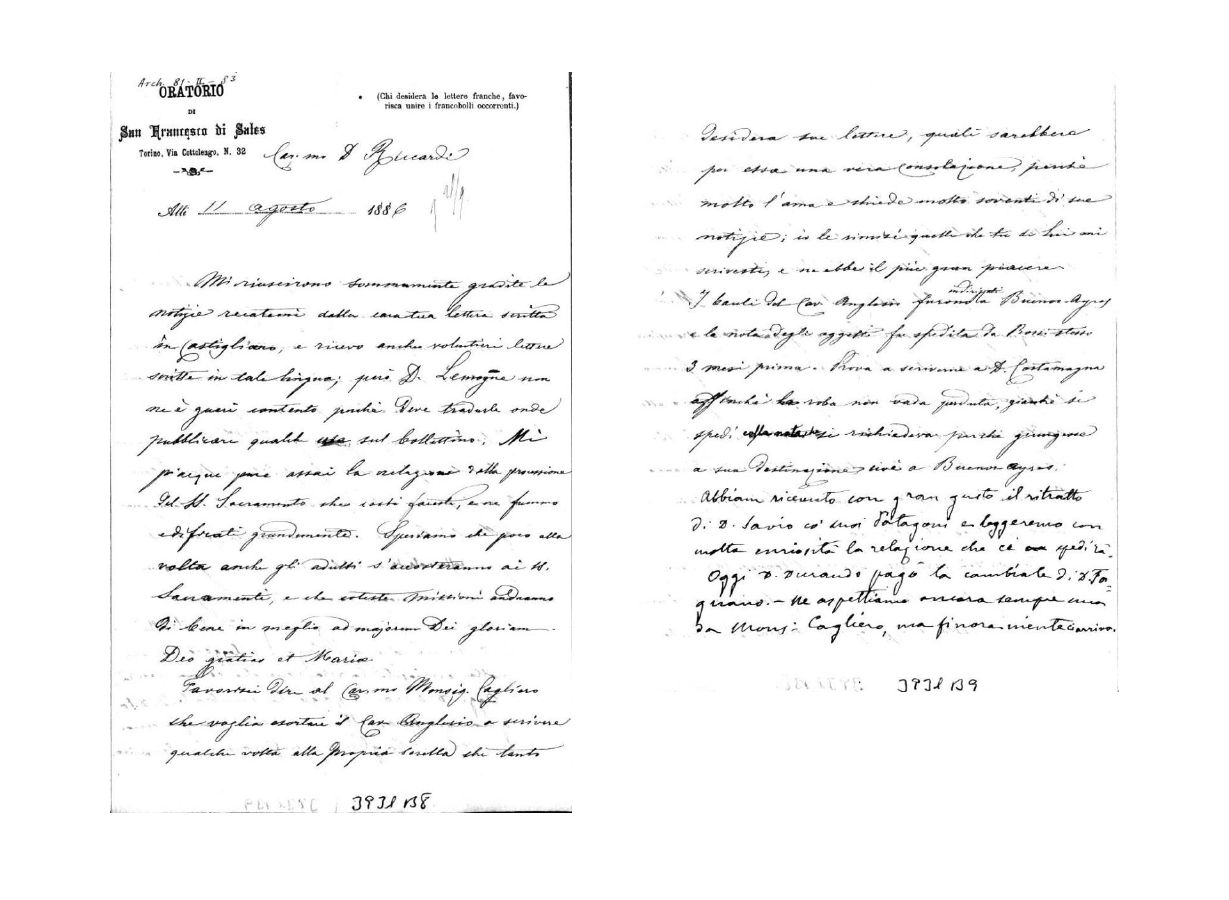 Arch. 81-II-83
ORATORIO
DI
San Francesco di Sales
Torino, Via Cottolengo, N. 32
(Chi desidera le lettere franche, favo-
risca unire i francobolli occorrenti.)
Car.mo D. Riccardi
Alli 11 agosto 1886
Mi riuscirono sommamente gradite le
notizie recatemi dalla cara tua lettera scritta
in Castigliano, e ricevo anche volentieri lettere
scritte in tale lingua; però D. Lemoyne non
ne è guari contento poichè deve tradurle onde
pubblicare qualche sul Bollettino. Mi
piacque pure assai la relazione della processione
del SS. Sacramento che costì faceste, e ne fummo
edificati grandemente. Speriamo che poco alla
volta anche gli adulti s'accosteranno ai SS.
Sacramenti, e che coteste missioni andranno
di bene in meglio ad majorem Dei gloriam.
Deo gratias et Mariae
Favorisci dire al Car.mo Monsig. Cagliero
che voglia esortare il Cav. Anglesio a scrivere
qualche volta alla propria sorella che tanto
3931 B8
desidera sue lettere, quali sarebbero
per essa una vera consolazione, perchè
molto l'ama e chiede molto soventi di sue
notizie; io le rimisi quelle che tu di lui mi
scrivesti, e ne ebbe il più gran piacere
I bauli del Cav. Anglesio furono indirizzati a Buenos-Ayres
e la nota degli oggetti fu spedita da Rossi stesso
3 mesi prima. Prova a scriverne a D. Costamagna
affinchè la roba non vada perduta, giacchè si
spedì si richiedeva perchè giungesse
a sua destinazione cioè a Buenos Ayres.
Abbiam ricevuto con gran gusto il ritratto
di D. Savio co' suoi Patagoni e leggeremo con
molta curiosità la relazione che ce spedirà.
Oggi D. Durando pagò la cambiale di D. Fa-
gnano. - Ne aspettiamo ancora sempre una
da Mons: Cagliero, ma finora niente ci arriva.
3931 B9